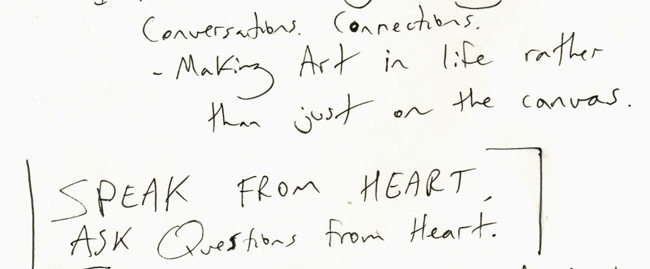 Conversations. Connections.
- Making Art in life rather
than just on the canvas.
SPEAK FROM HEART.
ASK Questions from Heart.